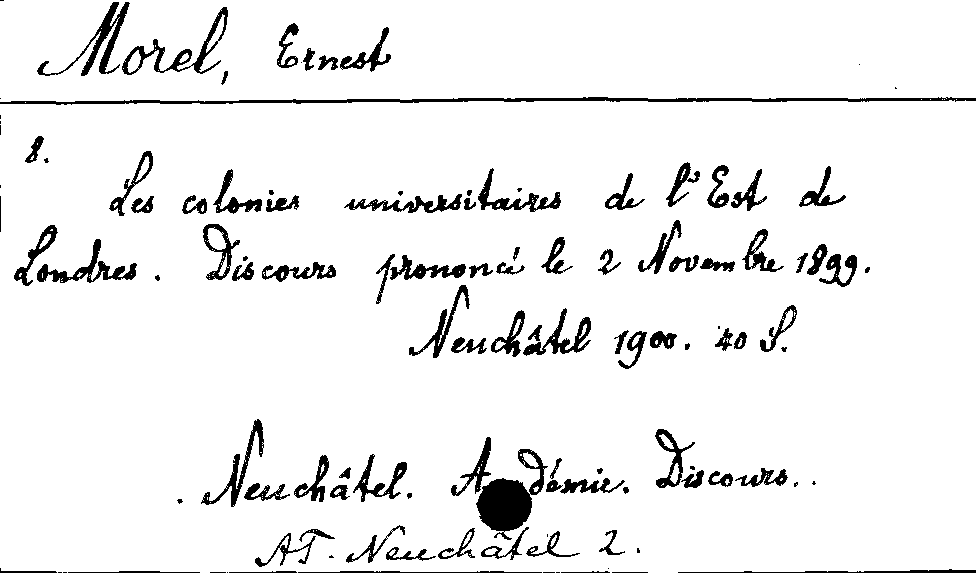 Morel, Ernest
8.
Les colonies universitaires de l'Est de
Londres. Discours prononcé le 2 Novembre 1899.
Neuchâtel 1900. 40 S.
Neuchâtel. A démie. Discours.
AT. Neuchâtel 2.